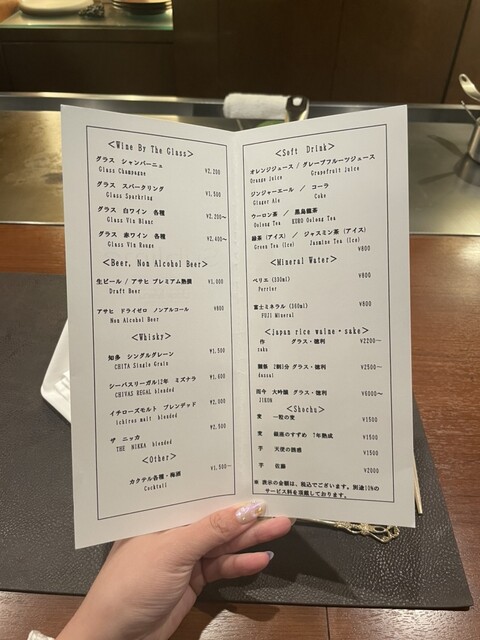 <Wine By The Glass>
グラス シャンパーニュ
Glass Champagne ¥2,200
グラス スパークリング
Glass Sparkring ¥1,500
グラス 白ワイン 各種
Glass Vin Blanc ¥2,200～
グラス 赤ワイン 各種
Glass Vin Rouge ¥2,400～
<Beer, Non Alcohol Beer>
生ビール / アサヒ プレミアム熟撰 ¥1,000
Draft Beer
アサヒ ドライゼロ ノンアルコール ¥800
Non Alcohol Beer
<Whisky>
知多 シングルグレーン ¥1,500
CHITA Single Grain
シーバスリーガル12年 ミズナラ ¥1,600
CHIVAS REGAL blended
イチローズモルト ブレンデッド ¥2,300
ichirus malt blended
ザ ニッカ ¥2,500
THE NIKKA blended
<Other>
カクテル各種・梅酒 ¥1,550～
Cocktail
<Soft Drink>
オレンジジュース / グレープフルーツジュース
Orange Juice Grapefruit Juice
ジンジャーエール / コーラ
Ginger Ale Coke
ウーロン茶 / 黒烏龍茶
Oolong Tea KURO Oolong Tea
緑茶 (アイス) / ジャスミン茶 (アイス)
Green Tea (Ice) Jasmine Tea (Ice)
¥800
<Mineral Water>
ペリエ (330ml) ¥900
Perrier
富士ミネラル (350ml) ¥800
FUJI Mineral
<japan rice waine・sake>
作 グラス・徳利 ¥2200～
zaku
獺祭 2割3分 グラス・徳利 ¥2500～
dassai
而今 大吟醸 グラス・徳利 ¥6000～
JIKON
<Shochu>
麦 一粒の麦 ¥1500
麦 銀座のすすめ 7年熟成 ¥1500
芋 天使の誘惑 ¥1500
芋 佐藤 ¥2000
※ 表示の金額は、税込でございます。別途10%の
サービス料を頂戴しております。